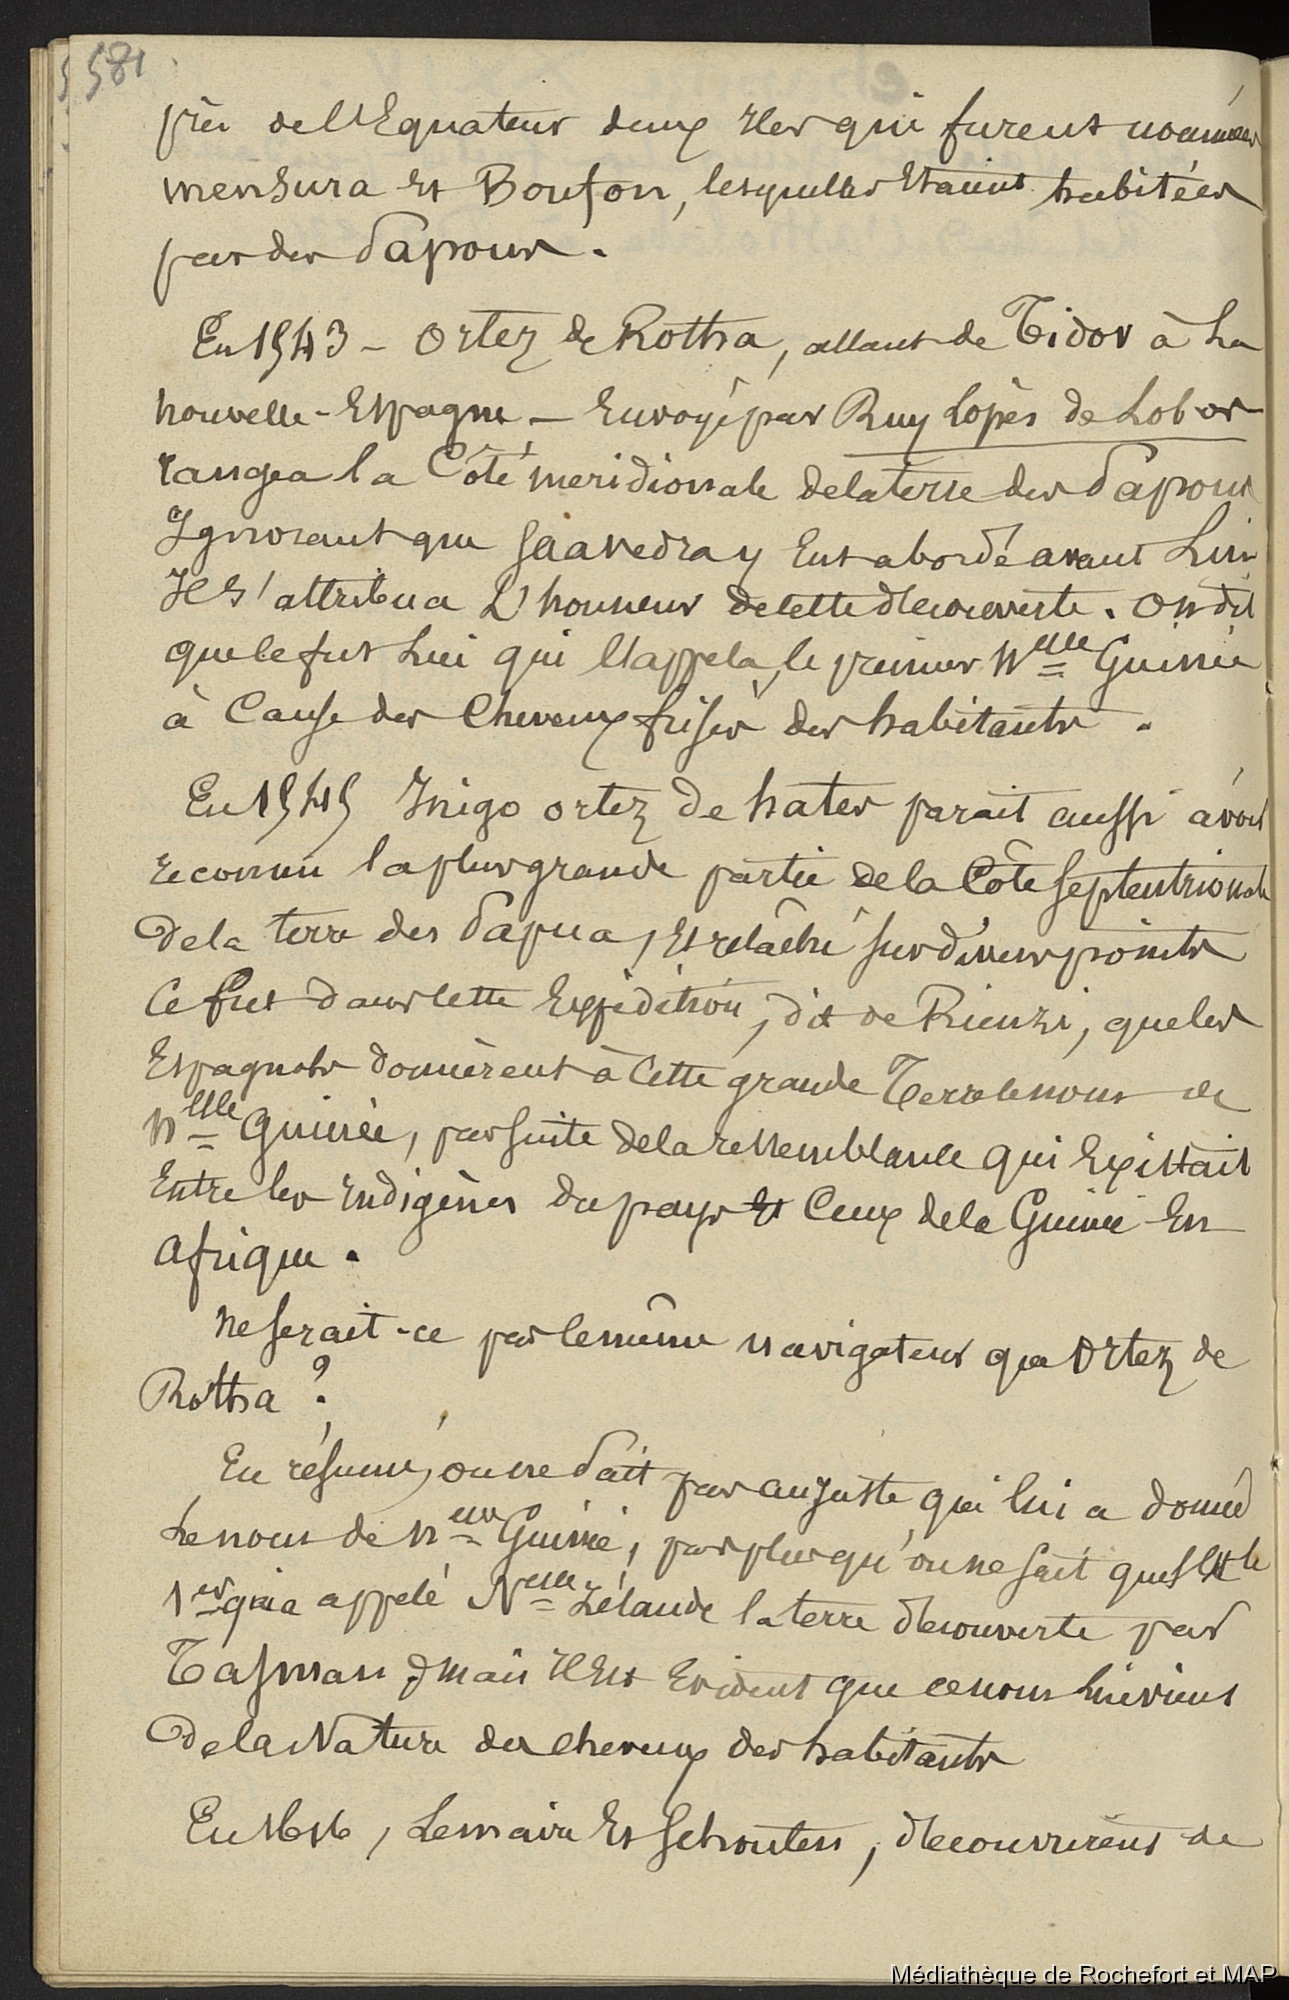 581
près de l'Equateur deux Iles qui furent nommées
mensura Et Boufon, lesquelles Etaient habitées
par des Papous.
En 1543 - Ortez de Rotha, allant de Tidor à La
nouvelle-Espagne - Envoyé par Ruy Lopès de Lobos
rangea la Côte méridionale de la terre des Papous
Ignorant que Saavedra y Eut abordé avant Lui
Il s'attribua L'honneur de cette découverte. On dit
que ce fut Lui qui l'appela, le premier Nelle Guinée
à Cause des Cheveux frisés des habitants.
En 1545 Inigo ortez de hates parait aussi avoir
reconnu la plus grande partie de la Côte Septentrionale
De la terre des Papua, Et relâché sur divers points
Ce fut dans cette Expédition, dit de Rienzi, que les
Espagnols donnèrent à Cette grande Terre le nom de
Nlle Guinée, par suite de la ressemblance qui Existait
Entre les Indigènes du pays Et Ceux de la Guinée En
Afrique.
Ne serait-ce pas le même navigateur que Ortez de
Rotha ?
En résumé, on ne sait pas au juste qui lui a donné
Le nom de Nelle Guinée, pas plus qu'on ne sait quel Est le
1er qui a appelé Nelle Zélande la terre découverte par
Tasman ; mais Il Est Evident que ce nom lui vient
De la Nature des cheveux des habitants
En 1616, Lemaire Et Schouten, découvrirent de
Médiathèque de Rochefort et MAP